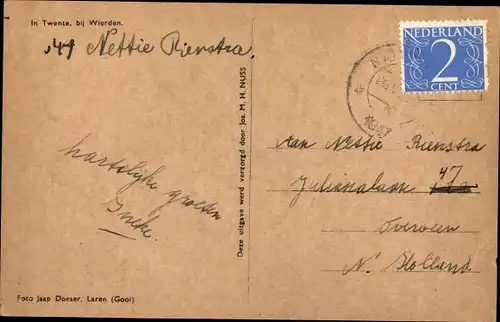 In Twente, bij Wierden.
'47 Nettie Rienstra
hartelijke groeten
Ineke
Foto Jaap Doeser, Laren (Gooi)
Deze uitgave werd verzorgd door Jos. M. H. NUSS
NEDERLAND
2
CENT
1947
Aan Nettie Rienstra
47
Julianalaan
Overveen
N. Holland